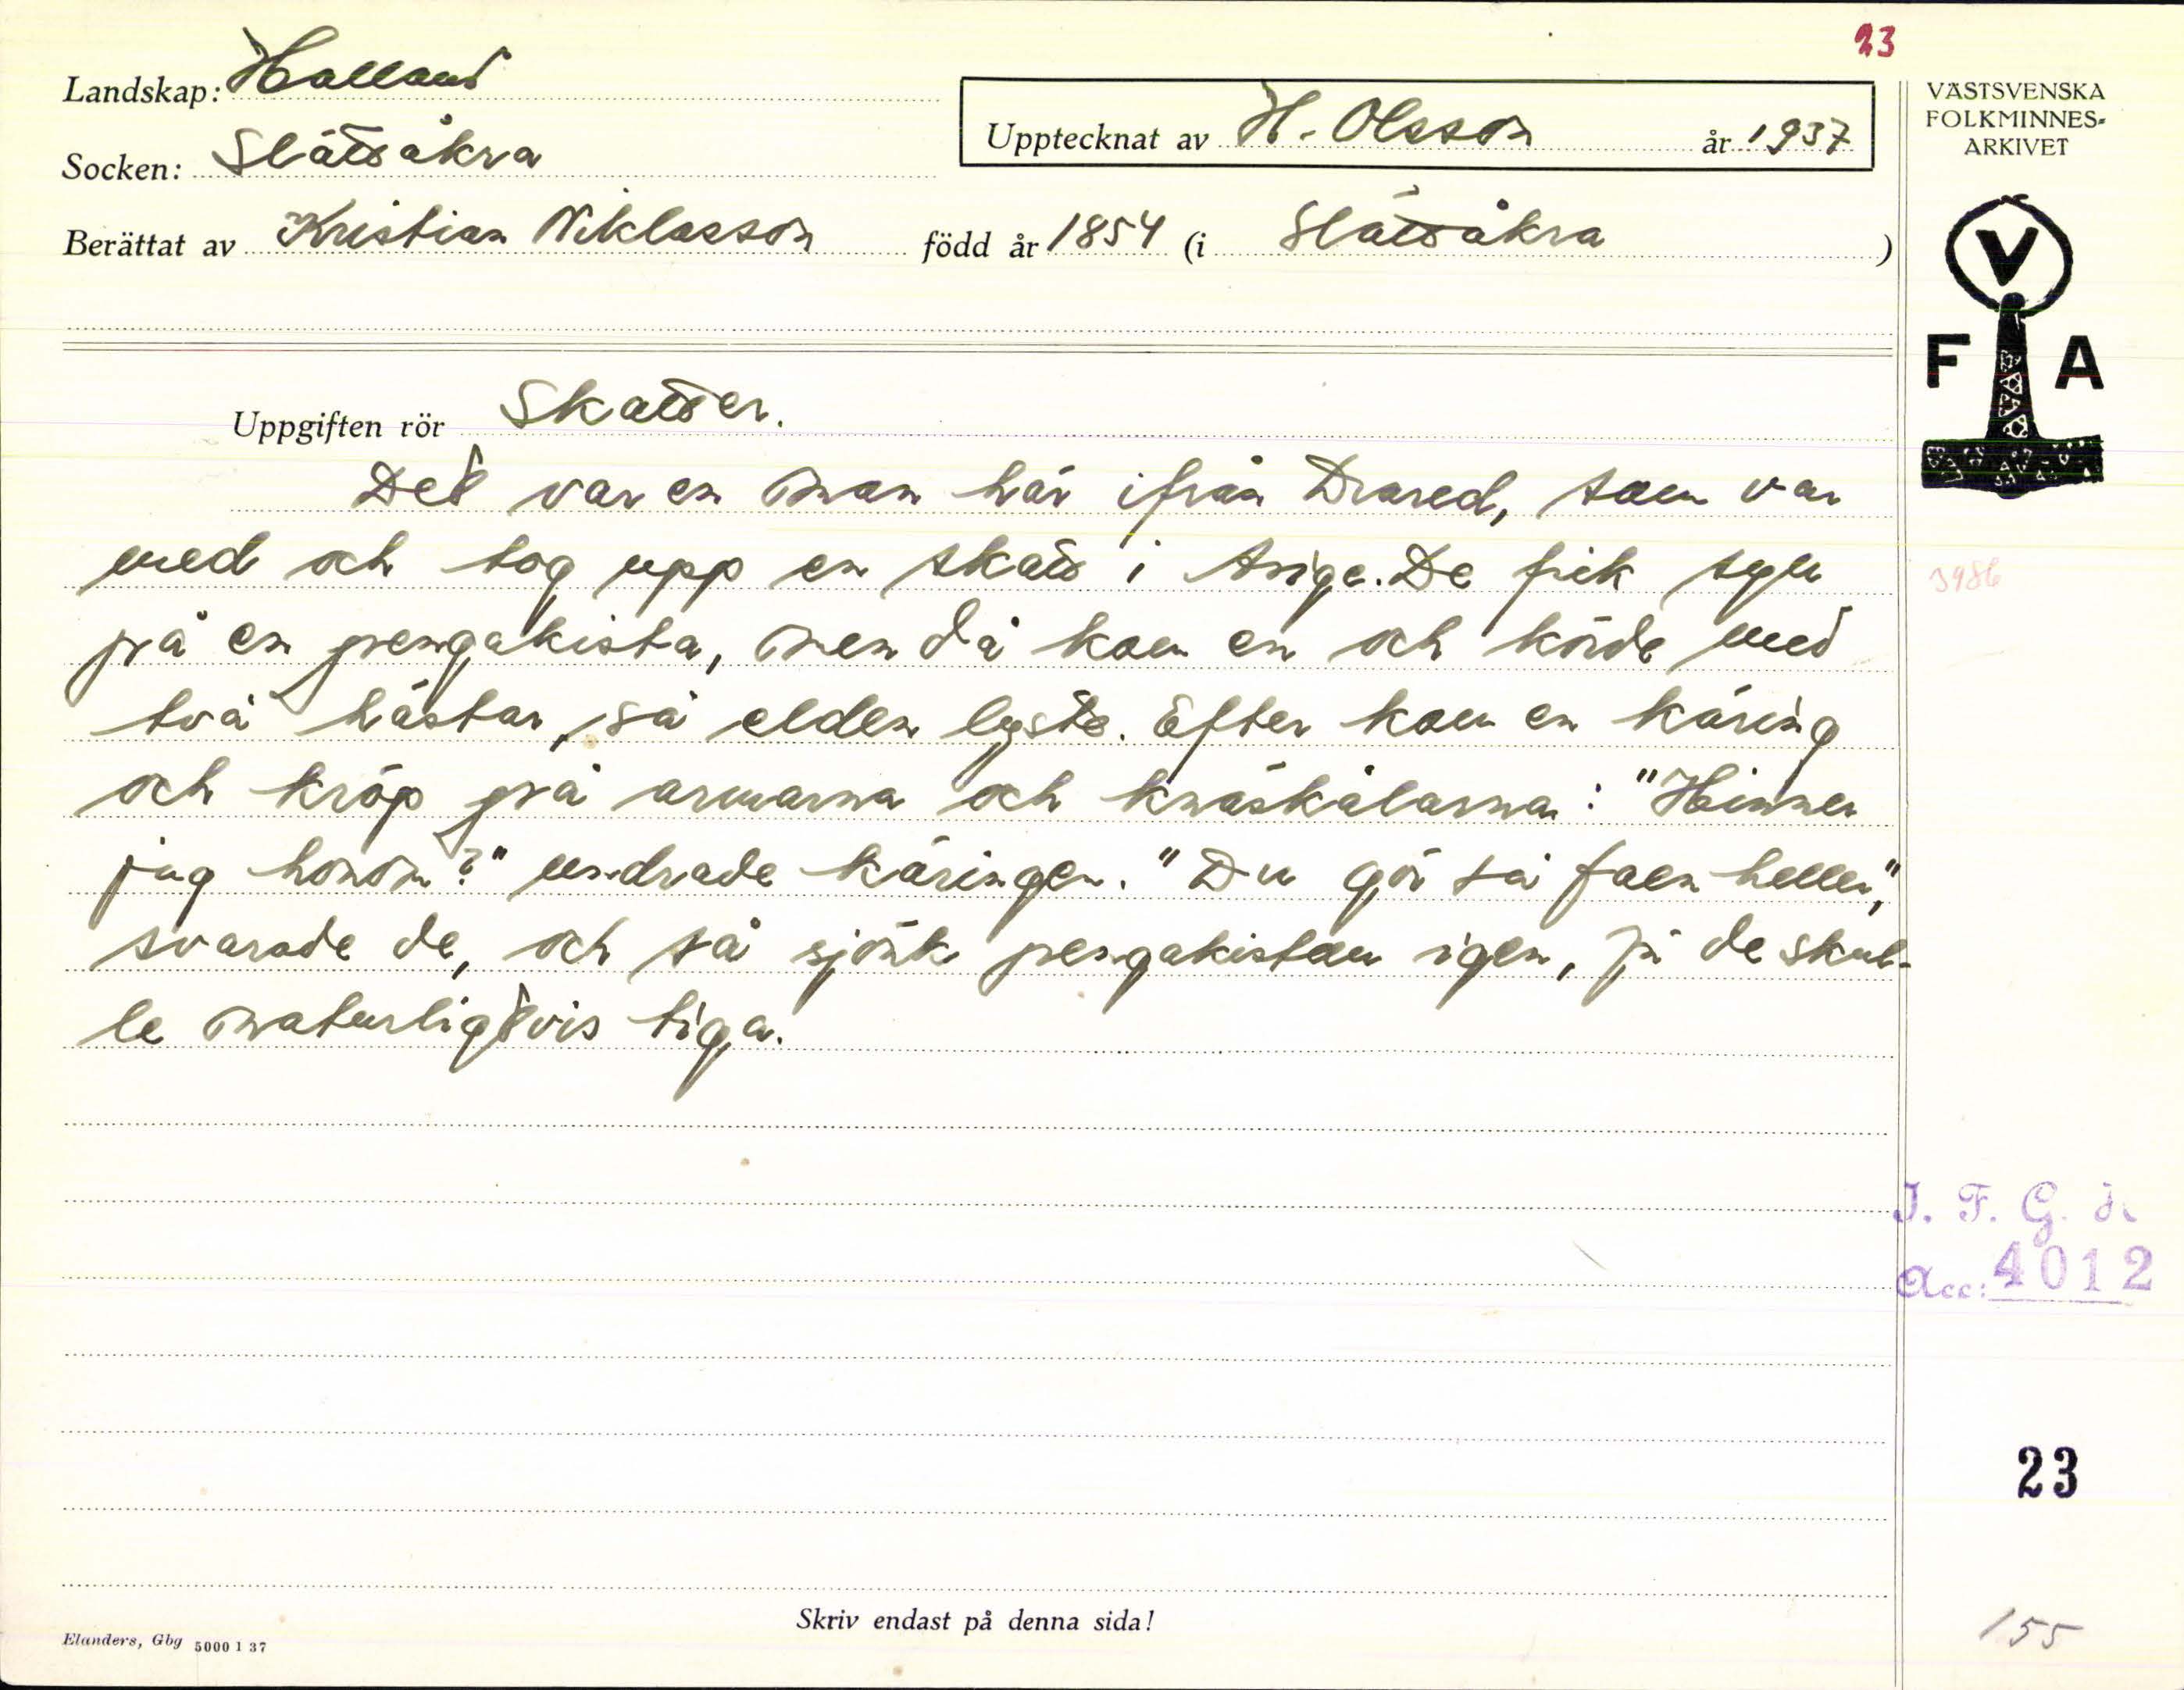 23
Landskap: Halland
Socken: Slättåkra
Upptecknat av H. Olsson år 1937
Berättat av Kristian Niklasson född år 1854 (i Slättåkra)
VÄSTSVENSKA
FOLKMINNES-
ARKIVET
V
F A
Uppgiften rör Skatter.
Det var en man här ifrån Drared, som var
med och tog upp en skatt i Arige. De fick syn
på en pengakista, men då kom en och körde med
två hästar, så elden lyste. Efter kom en käring
och kröp på armarna och knäskålarna: "Hinner
jag honom?" undrade käringen. "Du gör så faen heller,"
svarade de, och så sjönk pengakistan igen, ju de skul-
le naturligtvis tiga.
3986
I. F. G. H.
Acc: 4012
23
155
Skriv endast på denna sida!
Elanders, Gbg 5000 1 37